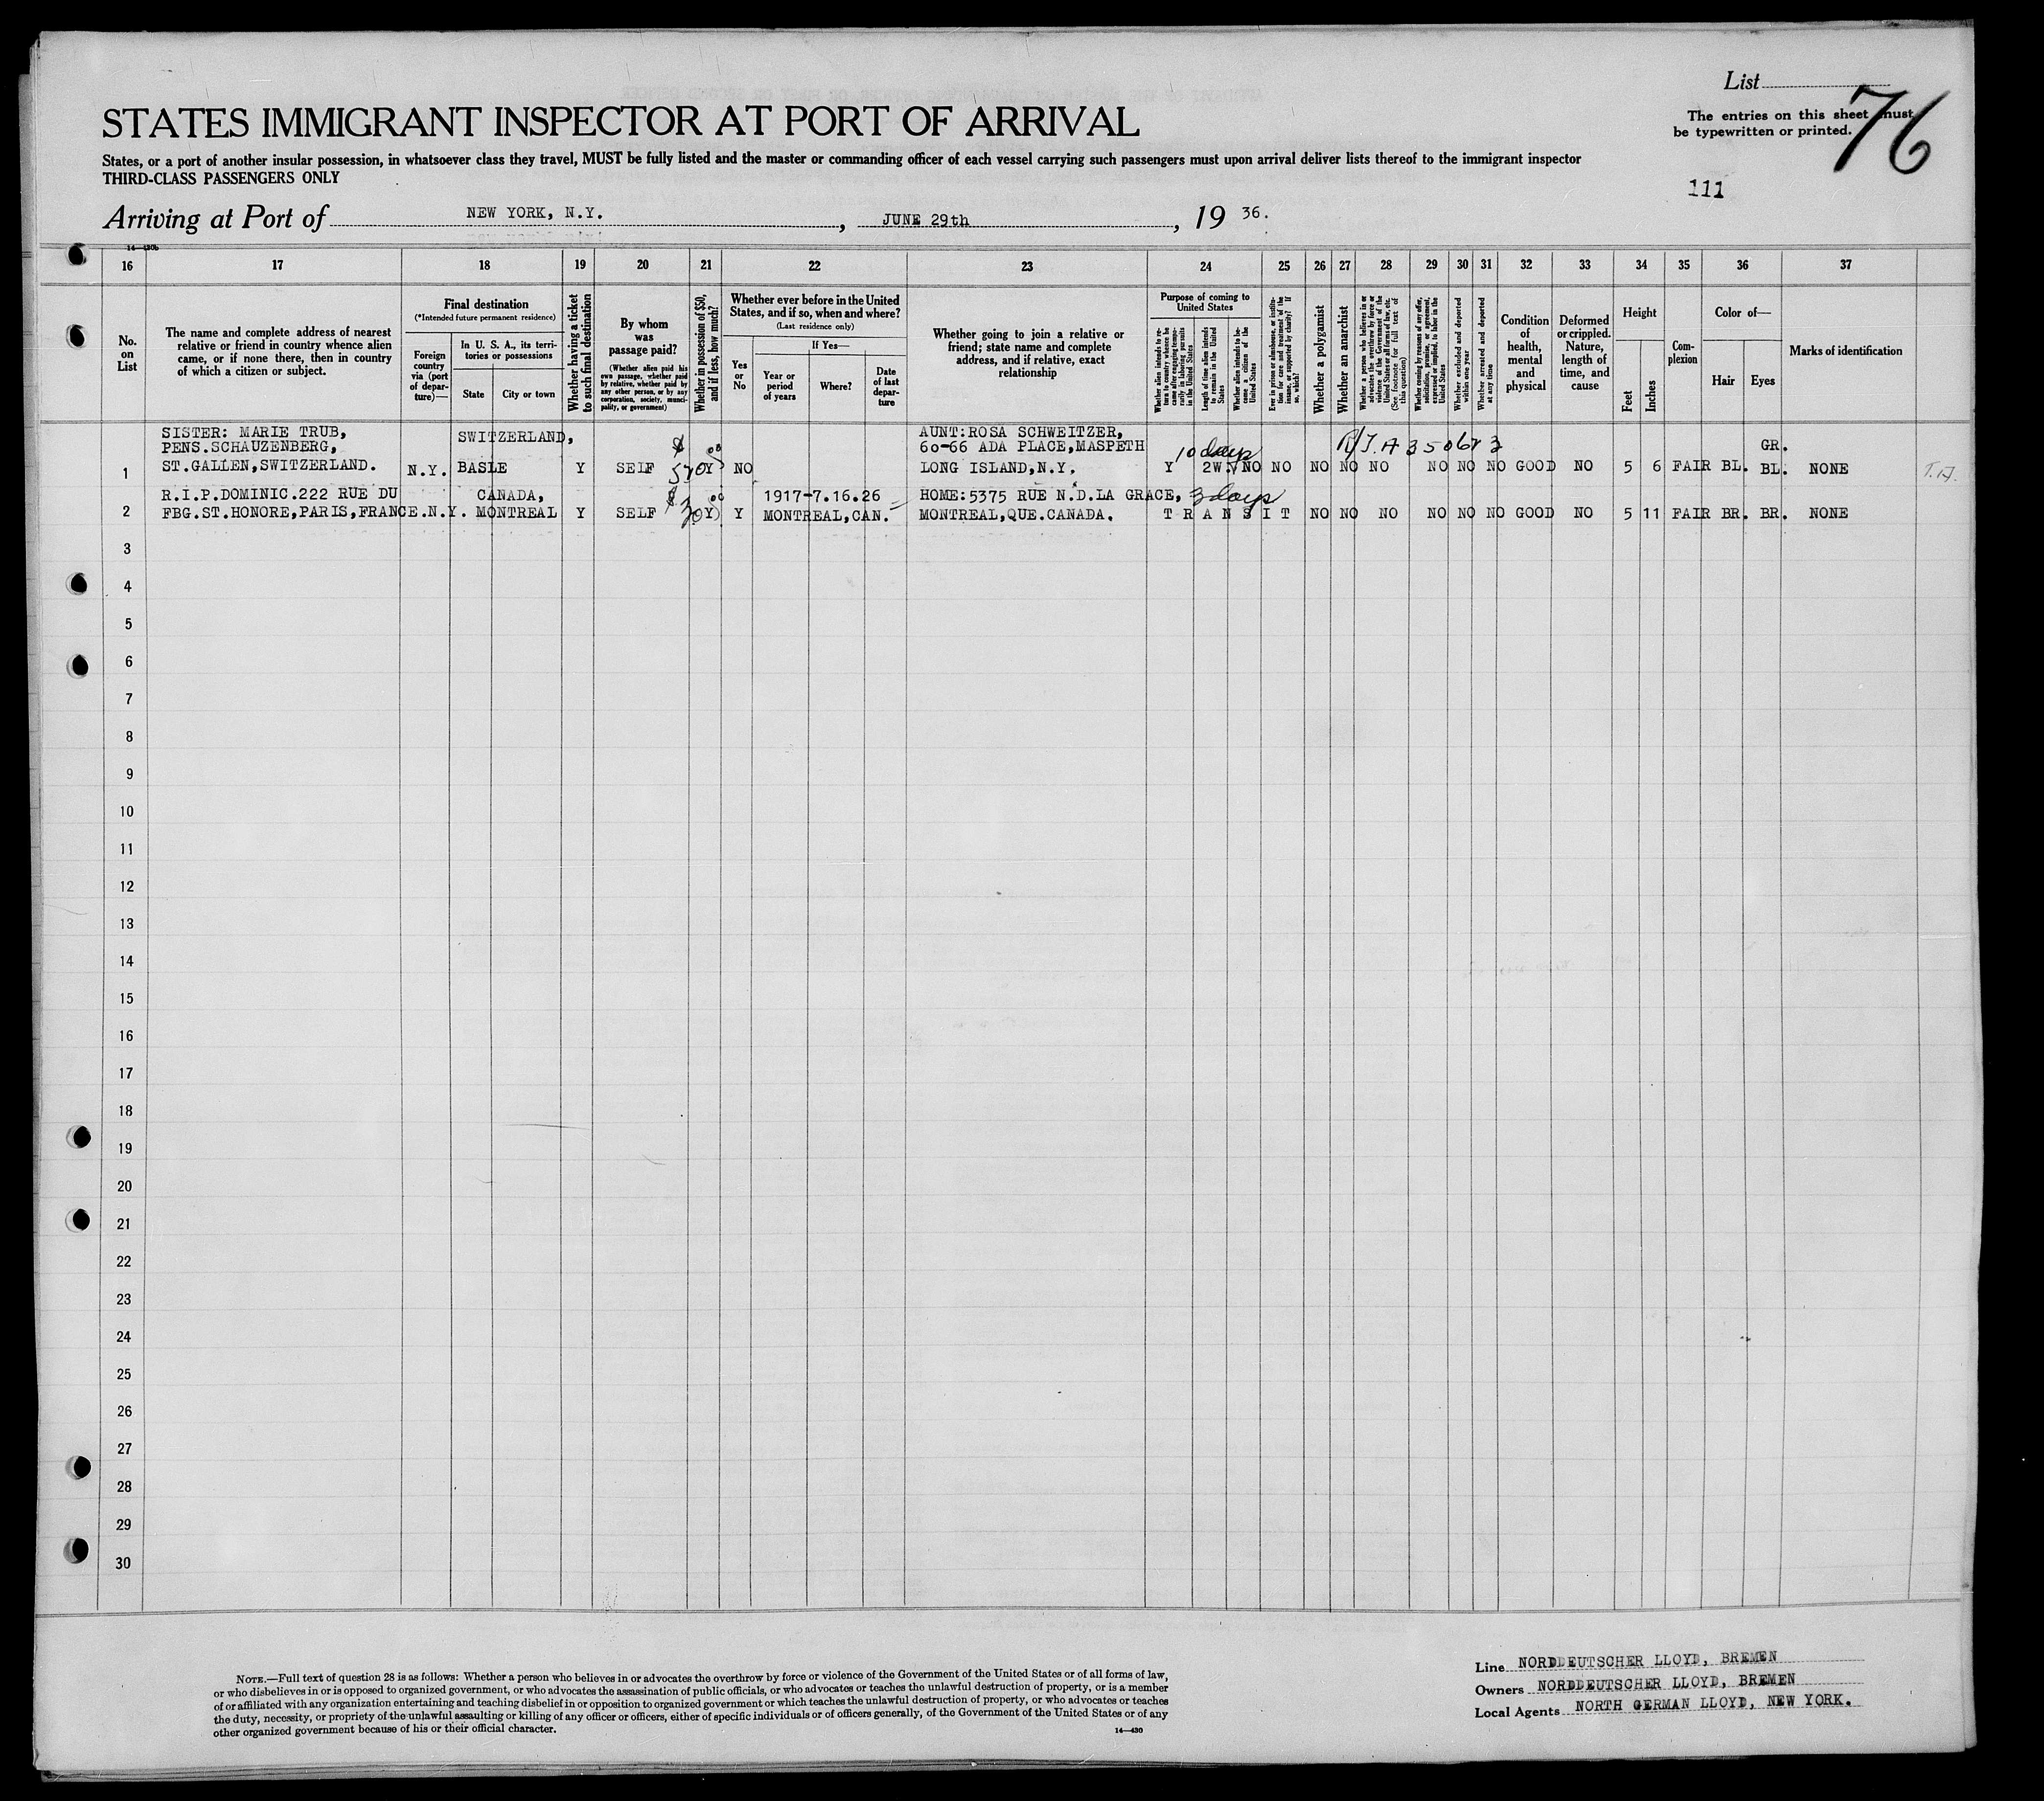 List
STATES IMMIGRANT INSPECTOR AT PORT OF ARRIVAL
The entries on this sheet must
be typewritten or printed.
76
States, or a port of another insular possession, in whatsoever class they travel, MUST be fully listed and the master or commanding officer of each vessel carrying such passengers must upon arrival deliver lists thereof to the immigrant inspector
THIRD-CLASS PASSENGERS ONLY
111
Arriving at Port of NEW YORK, N.Y. , JUNE 29th , 19 36.
16 17 18 19 20 21 22 23 24 25 26 27 28 29 30 31 32 33 34 35 36 37
No.
on
List
The name and complete address of nearest
relative or friend in country whence alien
came, or if none there, then in country
of which a citizen or subject.
Final destination
(*Intended future permanent residence)
Foreign
country
via (port
of depar-
ture)—
In U. S. A., its terri-
tories or possessions
State
City or town
Whether having a ticket
to such final destination
By whom
was
passage paid?
(Whether alien paid his
own passage, whether paid
by relative, whether paid by
any other person, or by any
corporation, society, munici-
pality, or government)
Whether in possession of $50,
and if less, how much?
Whether ever before in the United
States, and if so, when and where?
(Last residence only)
Yes
or
No
If Yes—
Year or
period
of years
Where?
Date
of last
depar-
ture
Whether going to join a relative or
friend; state name and complete
address, and if relative, exact
relationship
Purpose of coming to
United States
Whether alien intends to re-
turn to country whence he
came after engaging tempo-
rarily in laboring pursuits
in the United States
Length of time alien intends
to remain in the United
States
Whether alien intends to be-
come a citizen of the
United States
Ever in prison or almshouse, or institu-
tion for care and treatment of the
insane, or supported by charity? If
so, which?
Whether a polygamist
Whether an anarchist
Whether a person who believes in or
advocates the overthrow by force or
violence of the Government of the
United States or all forms of law, etc.
(See footnote for full text of
this question)
Whether coming by reasons of any offer,
solicitation, promise, or agreement,
expressed or implied, to labor in the
United States
Whether excluded and deported
within one year
Whether arrested and deported
at any time
Condition
of
health,
mental
and
physical
Deformed
or crippled.
Nature,
length of
time, and
cause
Height
Feet
Inches
Com-
plexion
Color of—
Hair
Eyes
Marks of identification
SISTER: MARIE TRUB, SWITZERLAND, AUNT:ROSA SCHWEITZER,
PENS.SCHAUZENBERG, $ 00 60-66 ADA PLACE,MASPETH 10 days GR.
1 ST.GALLEN,SWITZERLAND. N.Y. BASLE Y SELF Y NO LONG ISLAND,N.Y. Y 2W. NO NO NO NO NO NO NO NO GOOD NO 5 6 FAIR BL. BL. NONE
R.I.P.DOMINIC.222 RUE DU CANADA, $ 00 1917-7.16.26 HOME:5375 RUE N.D.LA GRACE, 3 days
2 FBG.ST.HONORE,PARIS,FRANCE.N.Y. MONTREAL Y SELF Y Y MONTREAL,CAN. MONTREAL,QUE.CANADA. T R A N S I T NO NO NO NO NO NO GOOD NO 5 11 FAIR BR. BR. NONE
3
4
5
6
7
8
9
10
11
12
13
14
15
16
17
18
19
20
21
22
23
24
25
26
27
28
29
30
NOTE.—Full text of question 28 is as follows: Whether a person who believes in or advocates the overthrow by force or violence of the Government of the United States or of all forms of law,
or who disbelieves in or is opposed to organized government, or who advocates the assassination of public officials, or who advocates or teaches the unlawful destruction of property, or is a member
of or affiliated with any organization entertaining and teaching disbelief in or opposition to organized government or which teaches the unlawful destruction of property, or who advocates or teaches
the duty, necessity, or propriety of the unlawful assaulting or killing of any officer or officers, either of specific individuals or of officers generally, of the Government of the United States or of any
other organized government because of his or their official character.
14—430
Line NORDDEUTSCHER LLOYD, BREMEN
Owners NORDDEUTSCHER LLOYD, BREMEN
Local Agents NORTH GERMAN LLOYD, NEW YORK.